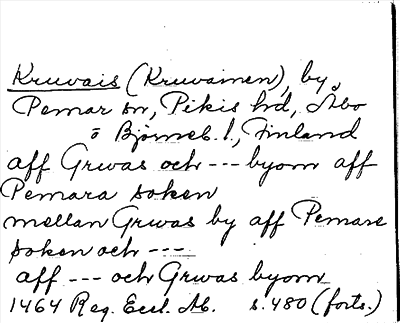 Kruvais (Kruvainen), by,
Pemar sn, Pikis hd, Åbo
o Björneb. l., Finland
aff Grwas och --- byom aff
Pemara soken
mellan Grwas by aff Pemare
soken och ---
aff --- och Grwas byom
1464 Reg. Eccl. Ab. s. 480 (forts.)